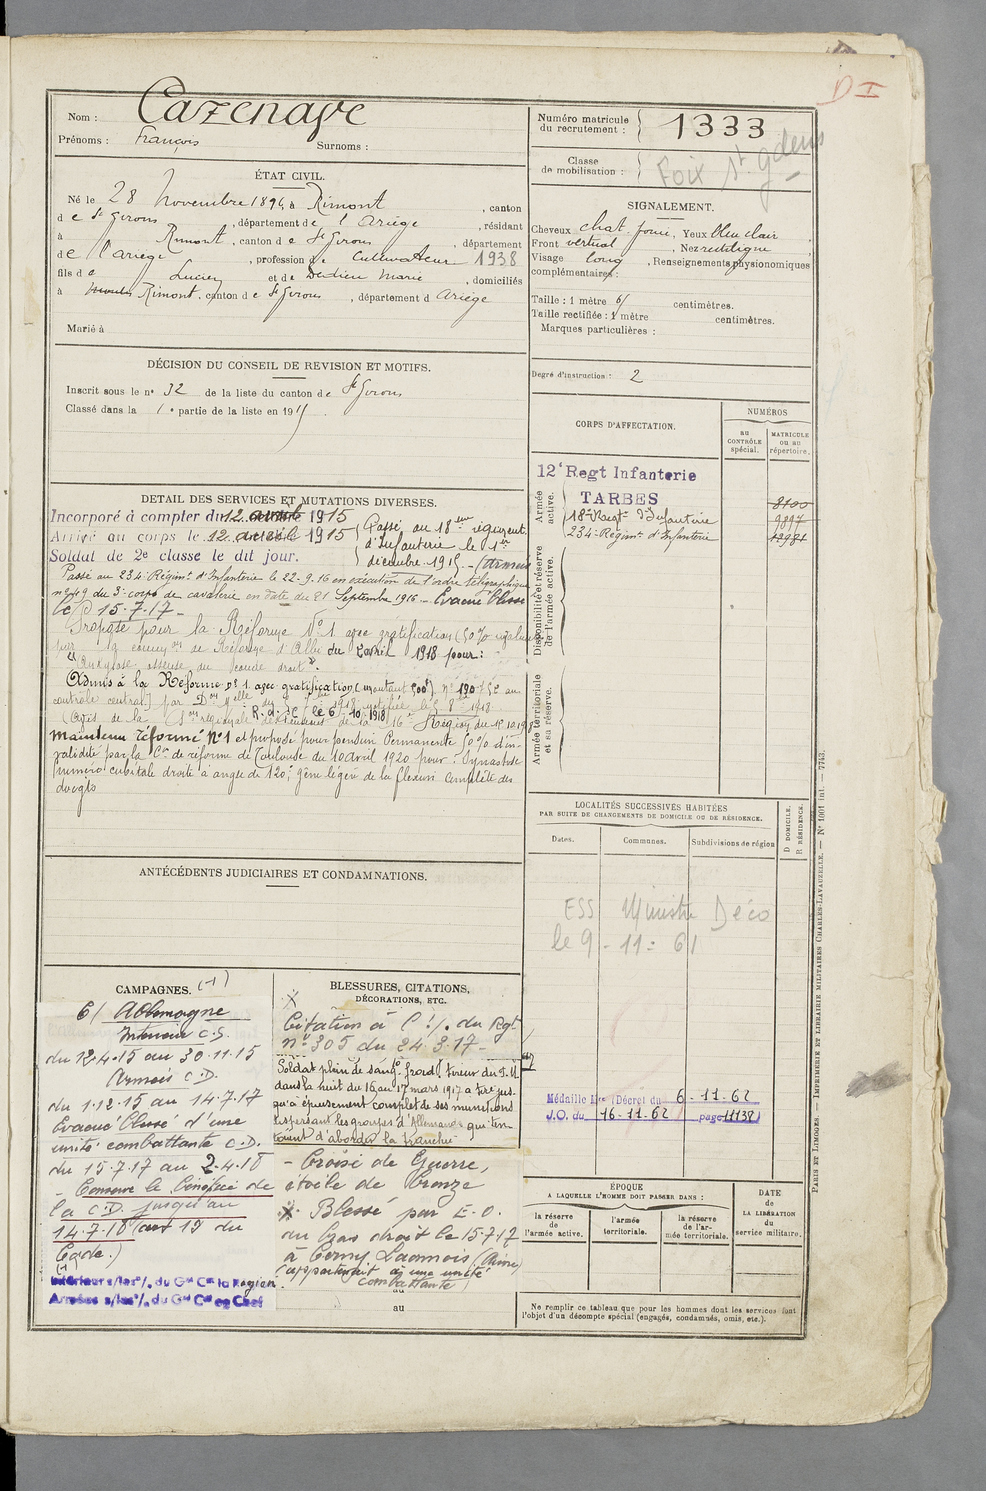 D I
Nom : Cazenave
Prénoms : François Surnoms :
Numéro matricule du recrutement : 1333
Classe de mobilisation :
Foix St Gdens
ÉTAT CIVIL.
Né le 28 Novembre 1896, à Rimont, canton
de St Girons, département de l'Ariège, résidant
à Rimont, canton de St Girons, département
de l'Ariège, profession de Cultivateur 1938
fils de Lucien et de Dedieu Marie, domiciliés
à Rimont, canton de St Girons, département d Ariège
Marié à
SIGNALEMENT.
Cheveux chat. foncé, Yeux bleu clair
Front vertical, Nez rectiligne
Visage long, Renseignements physionomiques
complémentaires :
Taille : 1 mètre 61 centimètres.
Taille rectifiée : 1 mètre centimètres.
Marques particulières :
DÉCISION DU CONSEIL DE REVISION ET MOTIFS.
Inscrit sous le n° 32 de la liste du canton de St Girons
Classé dans la 1e partie de la liste en 1915
Degré d'instruction : 2
CORPS D'AFFECTATION.
NUMÉROS
au CONTRÔLE spécial.
MATRICULE ou au répertoire.
Armée active.
12e Regt Infanterie
TARBES 8100
18e Regt d'Infanterie 9897
234e Regim. d'Infanterie
Disponibilité et réserve de l'armée active.
Armée territoriale et sa réserve.
DETAIL DES SERVICES ET MUTATIONS DIVERSES.
Incorporé à compter du 12 avril 1915
Arrivé au corps le 12 avril 1915
Soldat de 2e classe le dit jour.
Passé au 18eme régiment
d'Infanterie le 1er
décembre 1915 - (armées
Passé au 234e Régimt d'Infanterie le 22-9-16 en exécution de l'ordre télégraphique
n° 49 du 3e corps de cavalerie en date du 21 Septembre 1916. - Evacué blessé
le 15-7-17 -
Proposé pour la Réforme N°1 avec gratification (50%
par la common de Réforme d'Albi du avril 1918 pour :
"Ankylose osseuse du coude droit".
Admis à la Réforme n° 1 avec gratification (montant 500f)
contrôle central) par Don Melle du 1918 notifiée le 1918
(Avis de la 16e Région du
Maintenu réformé N°1 et proposé pour pension Permanente 50% d'in-
validité par la Con de réforme de Toulouse du 10 avril 1920 pour : Synostose
huméro cubitale droite à angle de 120°; gêne légère de la flexion complète des
doigts
LOCALITÉS SUCCESSIVES HABITÉES
PAR SUITE DE CHANGEMENTS DE DOMICILE OU DE RÉSIDENCE.
Dates. Communes. Subdivisions de région
D DOMICILE. R RÉSIDENCE.
ESS Ministre Déco
le 9-11-61
Médaille Mre (Décret du 6-11-62
J.O. du 16-11-62 page 11138)
ANTÉCÉDENTS JUDICIAIRES ET CONDAMNATIONS.
CAMPAGNES. (1)
C/ Allemagne
Intérieur C.S.
du 12-4-15 au 30-11-15
Armées C.D.
du 1-12-15 au 14-7-17
Evacué blessé d'une
unité combattante C.D.
du 15-7-17 au 2-4-18
- Conserve le bénéfice de
la C.D. jusqu'au
14-7-18 (art 19 du
Code.)
(1)
Intérieur s/les o/. du Gal Ct la Région
Armées s/les o/. du Gal Ct en Chef
BLESSURES, CITATIONS, DÉCORATIONS, ETC.
Citation à l'o/. du Rgt
n° 305 du 24-3-17 -
Soldat plein de sang-froid, tireur du F.M.
dans la nuit du 16 au 17 mars 1917 a tiré jus-
qu'à épuisement complet de ses munitions
dispersant les groupes d'Allemands qui ten-
taient d'aborder la tranchée
- Croix de Guerre,
étoile de bronze
Blessé par E.O.
au bras droit le 15-7-17
à Cerny Laonnois (Aisne)
(appartenait à une unité
combattante)
au
au
ÉPOQUE
A LAQUELLE L'HOMME DOIT PASSER DANS :
la réserve de l'armée active.
l'armée territoriale.
la réserve de l'armée territoriale.
DATE de LA LIBÉRATION du service militaire.
Ne remplir ce tableau que pour les hommes dont les services font
l'objet d'un décompte spécial (engagés, condamnés, omis, etc.).
PARIS ET LIMOGES. — IMPRIMERIE ET LIBRAIRIE MILITAIRES CHARLES-LAVAUZELLE. — N° 1001 int. — 7743.